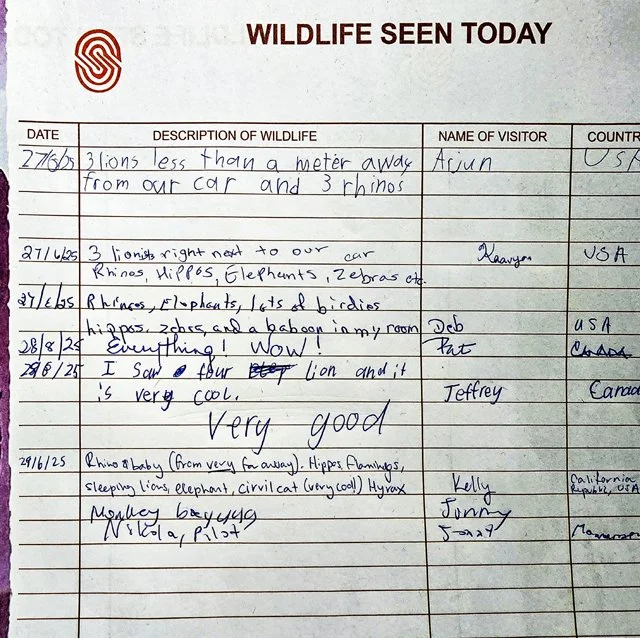 WILDLIFE SEEN TODAY
DATE DESCRIPTION OF WILDLIFE NAME OF VISITOR COUNTR
27/6/25 3 lions less than a meter away Arjun USA
from our car and 3 rhinos
27/6/25 3 lions right next to our car USA
Rhinos, Hippos, Elephants, Zebras etc.
27/6/25 Rhinos, Elephants, lots of birdies
hippos, zebra, and a baboon in my room Deb USA
28/8/25 Everything! WOW! Pat Canada
/6/25 I Saw four lion and it
is very cool. Jeffrey Canad
Very good
29/6/25 Rhino & baby (from very far away). Hippos, Flamings, California
sleeping lions, elephant, cirvil cat (very cool) Hyrax Kelly Republic, USA
Monkey Jonny
Nikola, Pilot